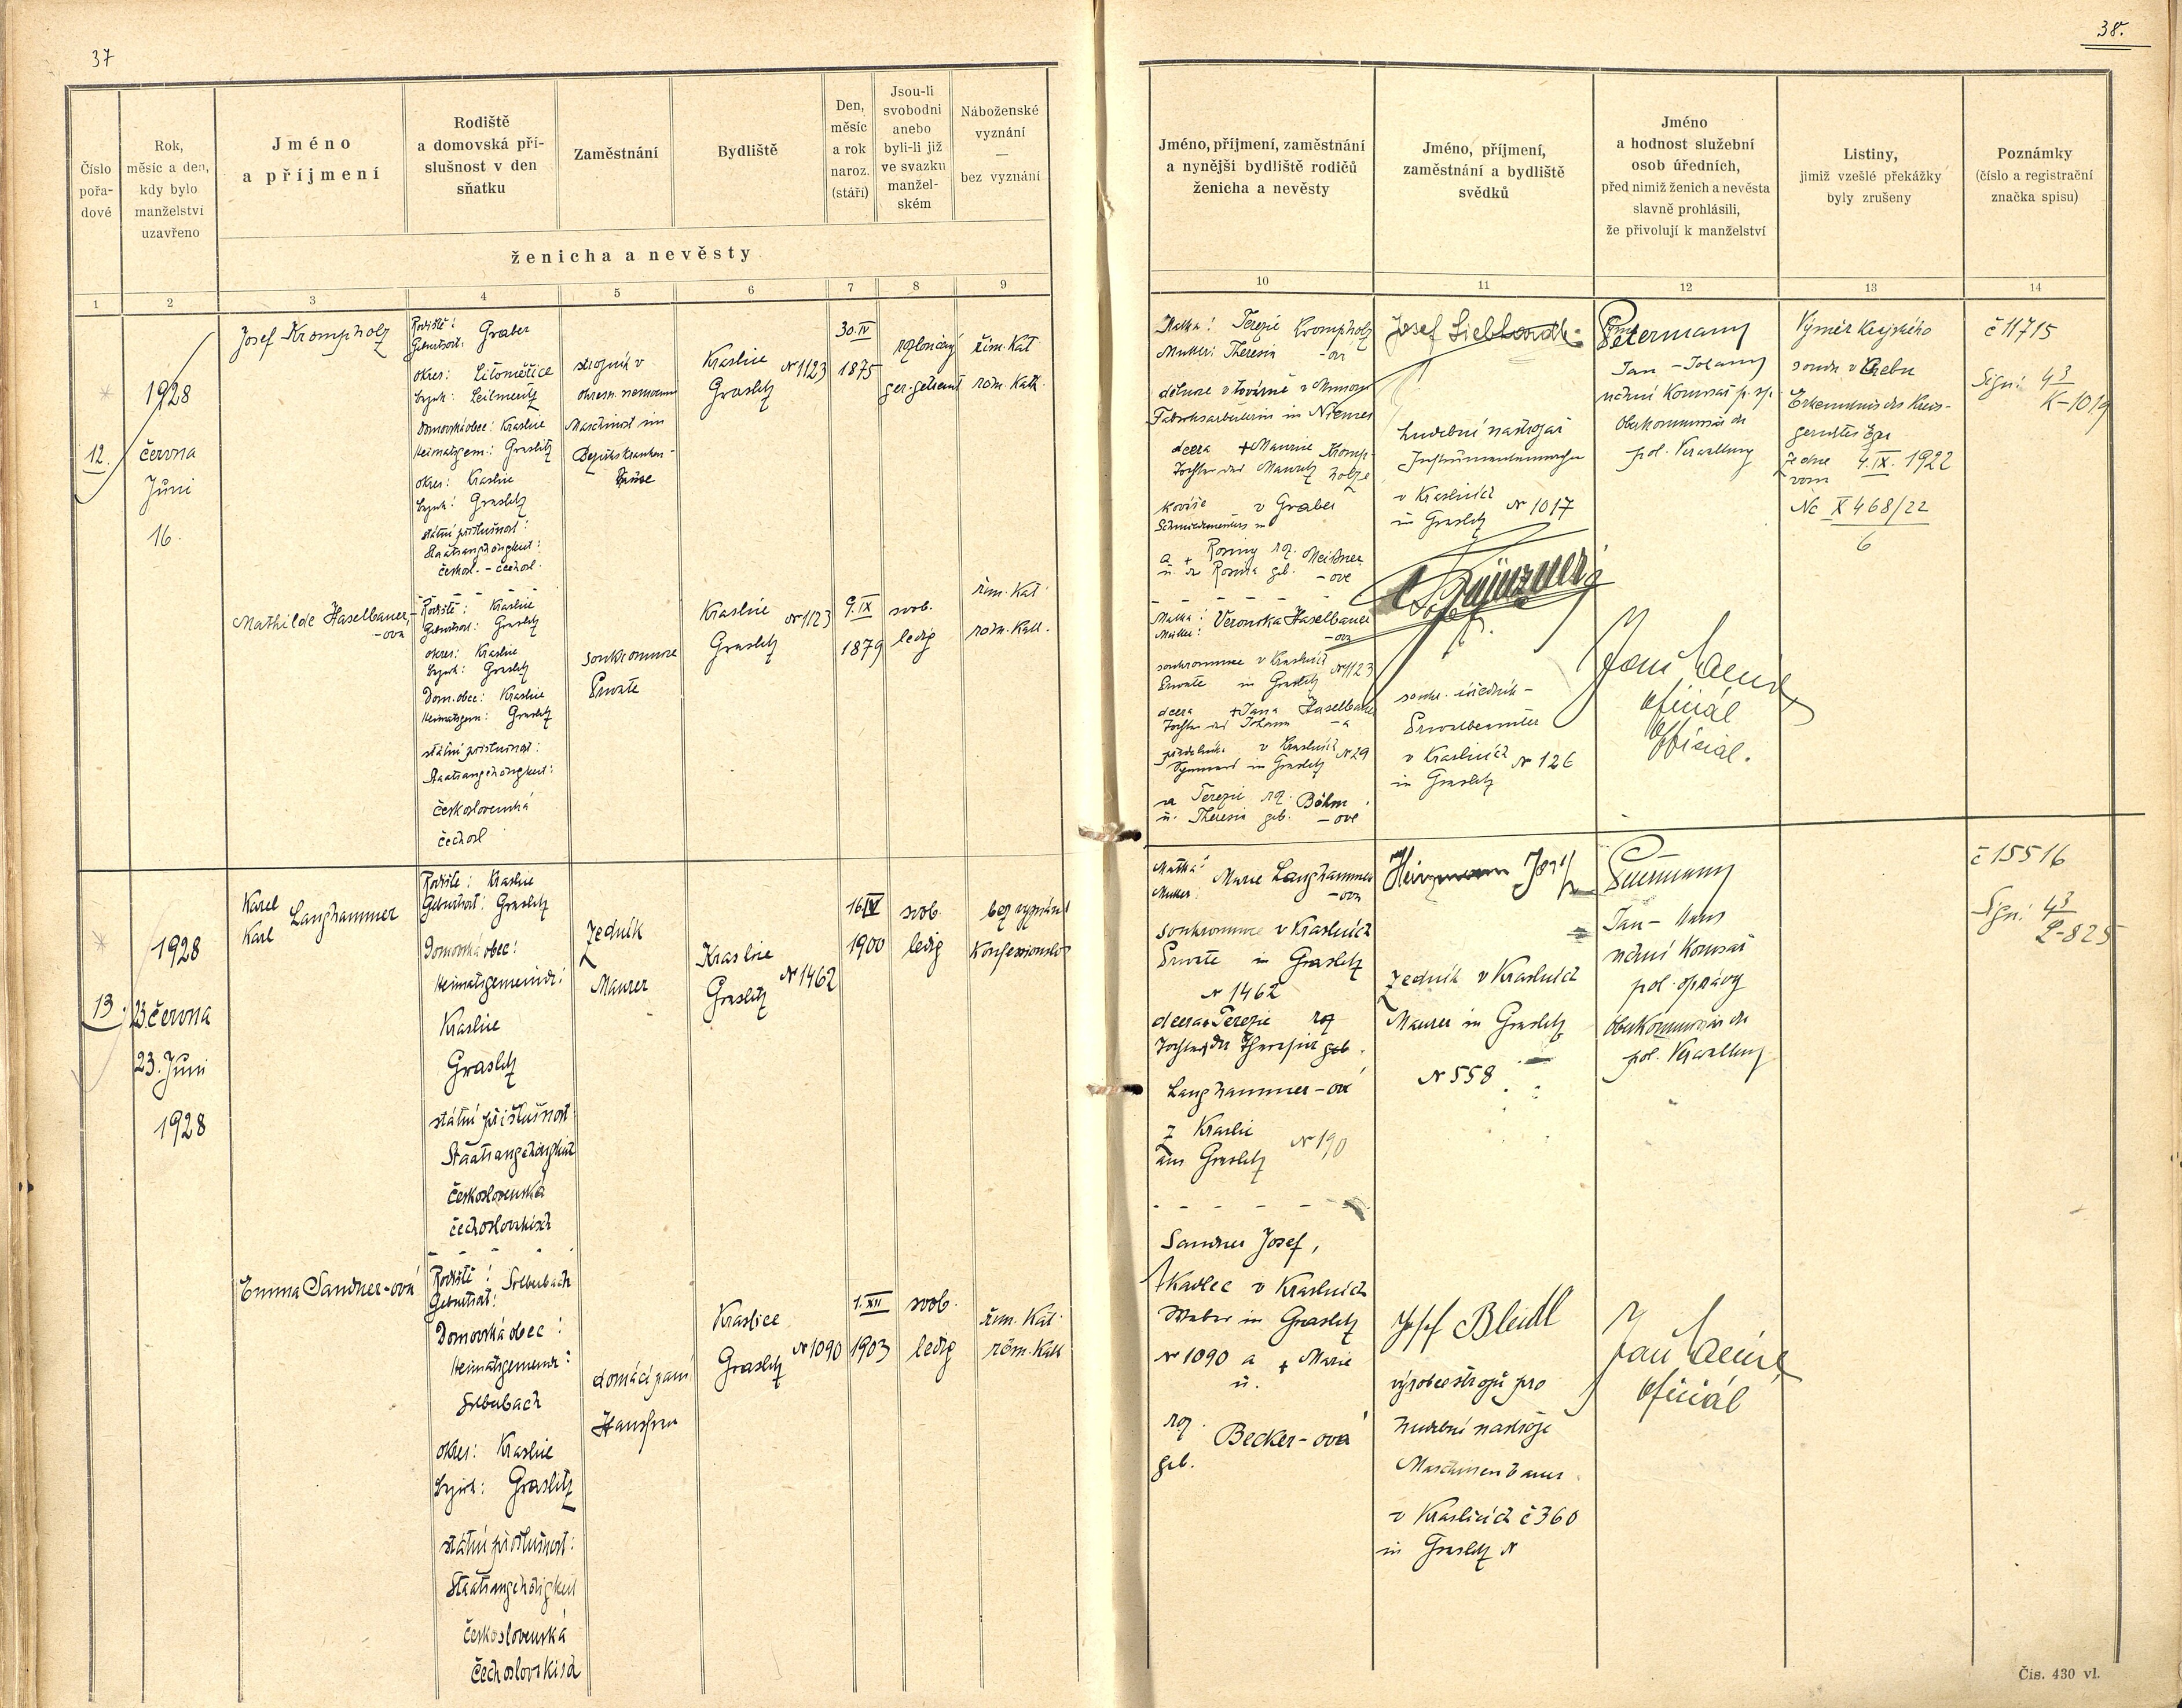 37
Číslo
pořa-
dové
Rok,
měsíc a den,
kdy bylo
manželství
uzavřeno
Jméno
a příjmení
Rodiště
a domovská pří-
slušnost v den
sňatku
Zaměstnání
Bydliště
Den,
měsíc
a rok
naroz.
(stáří)
Jsou-li
svobodni
anebo
byli-li již
ve svazku
manžel-
ském
Náboženské
vyznání
—
bez vyznání
ženicha a nevěsty
1 2 3 4 5 6 7 8 9
12.
1928
června
Juni
16.
Josef Krompholz
Rodiště:
Geburtsort: Graber
okres: Litoměřice
Bezirk: Leitmeritz
Domovská obec: Kraslice
Heimatsgem.: Graslitz
okres: Kraslice
Bezirk: Graslitz
státní příslušnost:
Staatsangehörigkeit:
českosl. - čechosl.
strojník v
okresn. nemocnici
Maschinist im
Bezirkskranken-
hause
Kraslice
Graslitz
N 1123
30. IV
1875
rozloučený
ger. getrennt
řím. Kat.
röm. Kath.
Mathilde Haselbauer-
-ova
Rodiště: Kraslice
Geburtsort: Graslitz
okres: Kraslice
Bezirk: Graslitz
Dom. obec: Kraslice
Heimatsgem: Graslitz
státní příslušnost:
Staatsangehörigkeit:
československá
čechosl
soukromnice
Private
Kraslice
Graslitz
N 1123
9. IX
1879
svob.
ledig
řím. Kat.
röm. Kath.
13.
1928
23. června
23. Juni
1928
Karel
Karl
Langhammer
Rodiště: Kraslice
Geburtsort: Graslitz
Domovská obec:
Heimatsgemeinde:
Kraslice
Graslitz
státní příslušnost:
Staatsangehörigkeit
československá
čechoslovakisch
zedník
Maurer
Kraslice
Graslitz
N 1462
16. IV
1900
svob.
ledig
bez vyznání
Konfessionslos
Emma Sandner-ová
Rodiště:
Geburtsort:
Silberbach
Domovská obec:
Heimatsgemeinde:
Silberbach
okres: Kraslice
Bezirk: Graslitz
státní příslušnost:
Staatsangehörigkeit
československá
čechoslovakisch
domácí paní
Hausfrau
Kraslice
Graslitz
N 1090
1. XII
1903
svob.
ledig
řím. Kat.
röm. Kath
38.
Jméno, příjmení, zaměstnání
a nynější bydliště rodičů
ženicha a nevěsty
Jméno, příjmení,
zaměstnání a bydliště
svědků
Jméno
a hodnost služební
osob úředních,
před nimiž ženich a nevěsta
slavně prohlásili,
že přivolují k manželství
Listiny,
jimiž vzešlé překážky
byly zrušeny
Poznámky
(číslo a registrační
značka spisu)
10 11 12 13 14
Matka: Terezie Krompholz
Mutter: Theresia -ová
dělnice v továrně v Mimoni
Fabriksarbeiterin in Niemes
dcera + Maurice Kromp-
Tochter des Moritz holze
kováře v Graber
Schmiedemeisters in
a + Rosiny roz. Meissner
u. der Rosina geb. -ove
Matka: Veronika Haselbauer
Mutter: -ova
soukromnice v Kraslicích
Private in Graslitz
N 1123
dcera + Jana Haselbauer
Tochter des Johann -a
v Kraslicích
in Graslitz
N 29
a Terezie roz. Böhm
u. Theresia geb. -ové
Josef
hudební nástrojař
Instrumentenmacher
v Kraslicích
in Graslitz
N 1017
soukr. úředník -
Privatbeamter
v Kraslicích
in Graslitz
N 126
Petermann
Jan - Johann
vrchní komisař p. sp.
Oberkommissär der
pol. Verwaltung
oficiál
Offizial.
Výměr Krajského
soudu v Chebu
Erkenntnis des Kreis-
gerichtes Eger
ze dne 4. IX. 1922
vom
Nc X 468/22
6
č 11715
Sign: 43
K-1019
Matka:
Mutter:
Marie Langhammer
-ova
soukromnice v Kraslicích
Private in Graslitz
N 1462
dcera + Terezie roz
Tochter der Theresia geb.
Langhammer-ové
z Kraslic
aus Graslitz
N 190
Sandner Josef,
tkadlec v Kraslicích
Weber in Graslitz
N 1090 a + Marie
u.
roz.
geb.
Becker-ová
Josef
zedník v Kraslicích
Maurer in Graslitz
N 558
Josef Bleidl
výrobce strojů pro
hudební nástroje
Maschinenbauer
v Kraslicích č 360
in Graslitz N
Petermann
Jan - Hans
vrchní komisař
pol. správy
Oberkommissär der
pol. Verwaltung
oficiál
č 15516
Sign: 43
L-825
Čís. 430 vl.